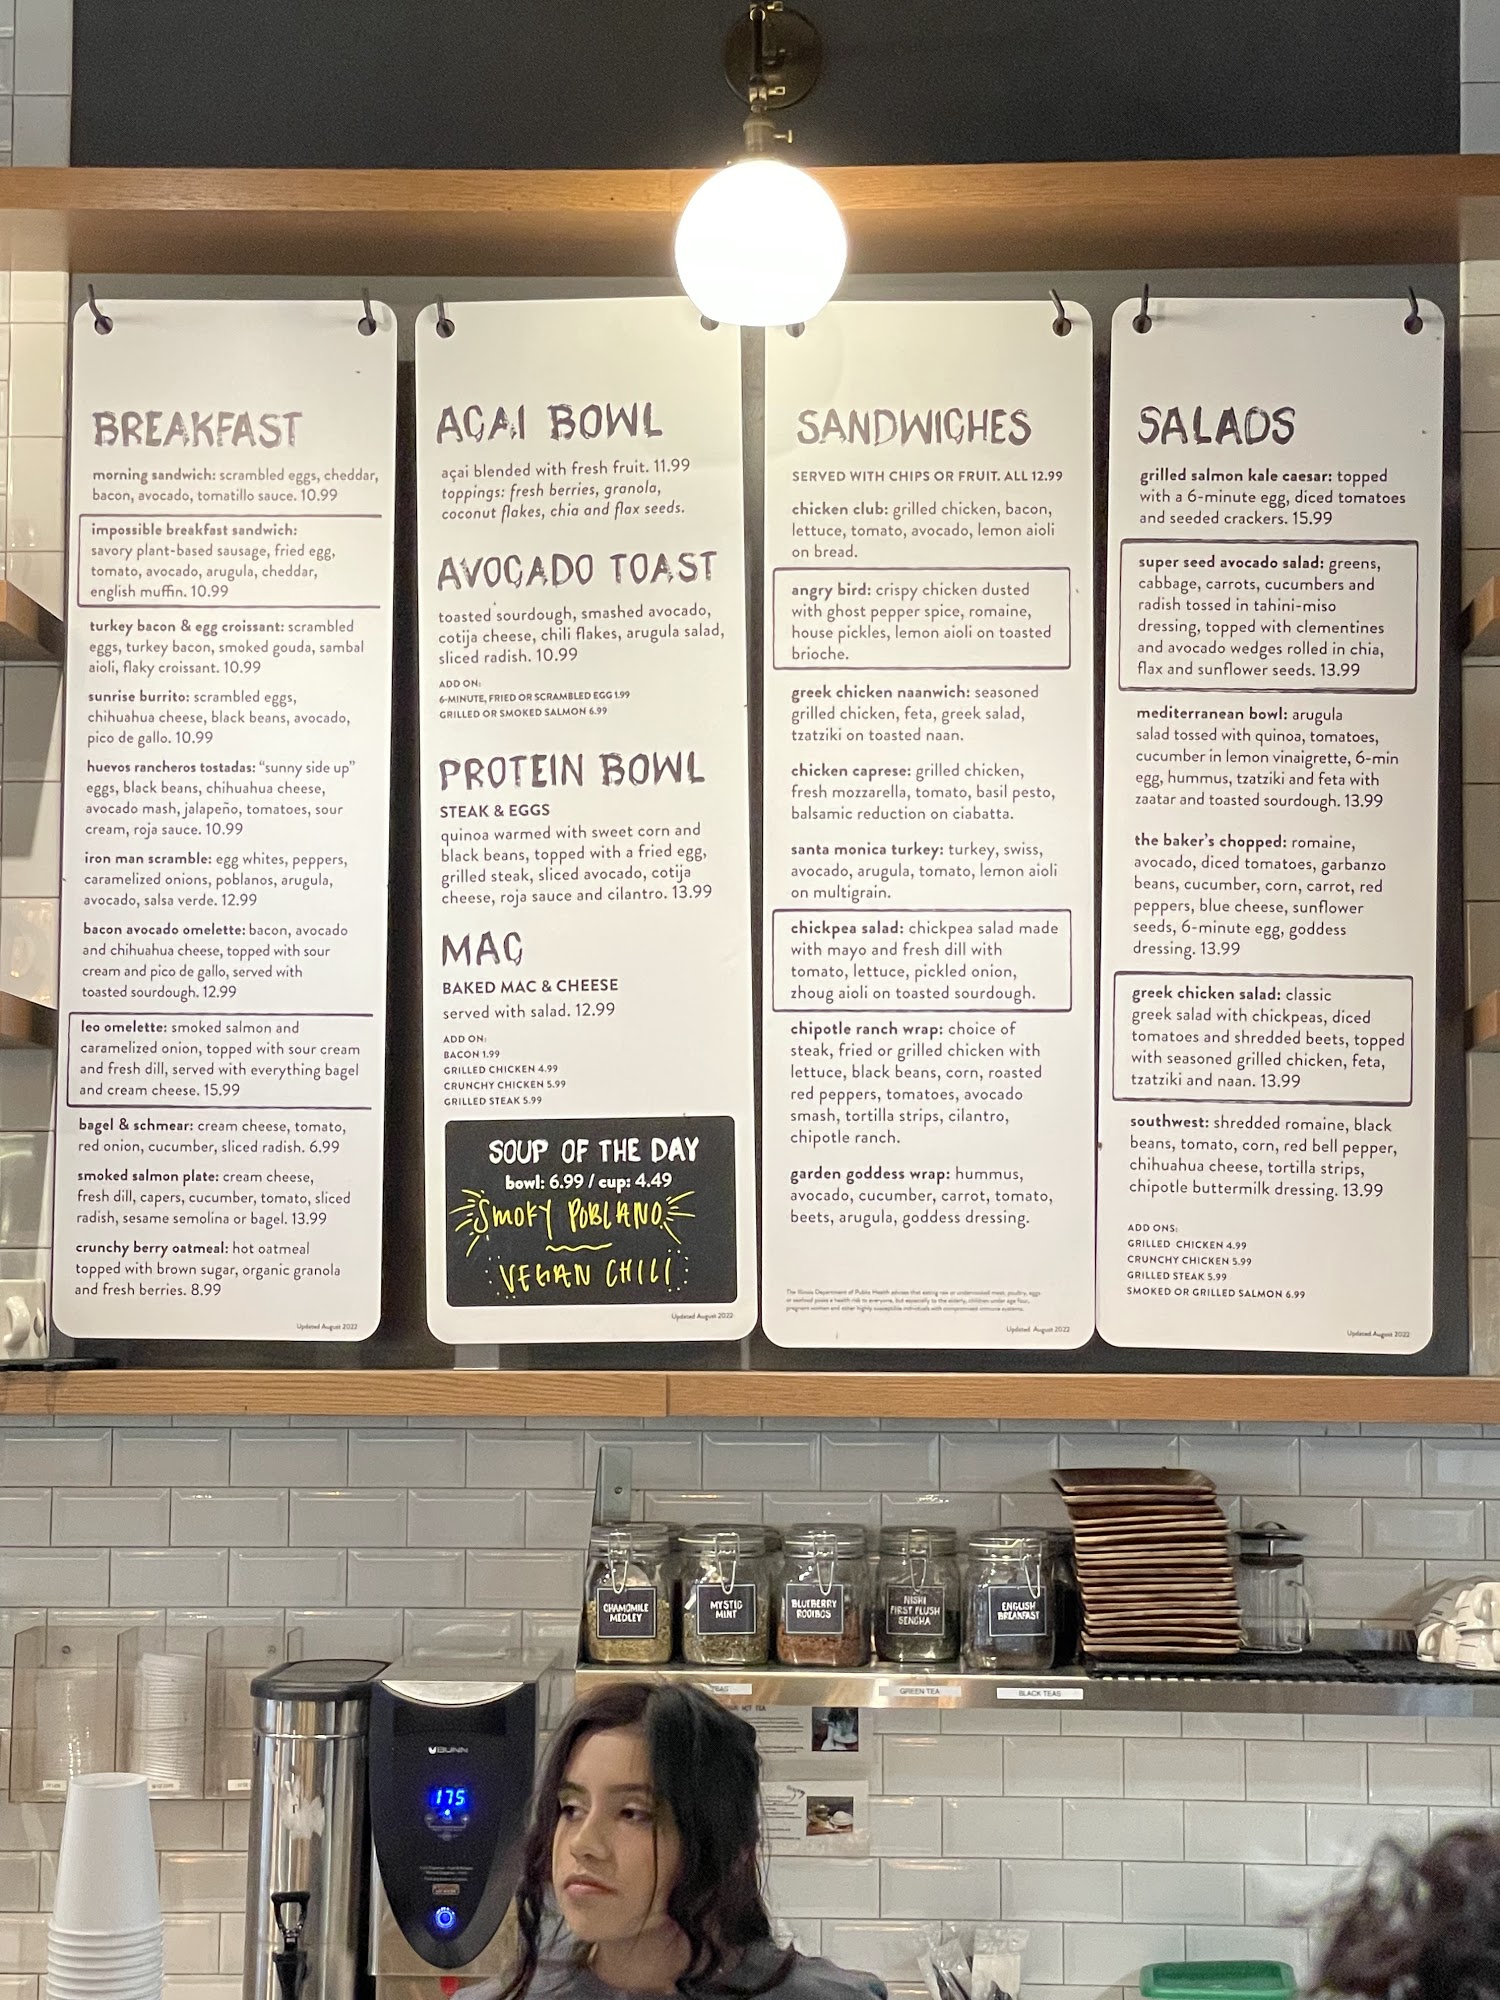 BREAKFAST
morning sandwich: scrambled eggs, cheddar,
bacon, avocado, tomatillo sauce. 10.99
impossible breakfast sandwich:
savory plant-based sausage, fried egg,
tomato, avocado, arugula, cheddar,
english muffin. 10.99
turkey bacon & egg croissant: scrambled
eggs, turkey bacon, smoked gouda, sambal
aioli, flaky croissant. 10.99
sunrise burrito: scrambled eggs,
chihuahua cheese, black beans, avocado,
pico de gallo. 10.99
huevos rancheros tostadas: "sunny side up"
eggs, black beans, chihuahua cheese,
avocado mash, jalapeño, tomatoes, sour
cream, roja sauce. 10.99
iron man scramble: egg whites, peppers,
caramelized onions, poblanos, arugula,
avocado, salsa verde. 12.99
bacon avocado omelette: bacon, avocado
and chihuahua cheese, topped with sour
cream and pico de gallo, served with
toasted sourdough. 12.99
leo omelette: smoked salmon and
caramelized onion, topped with sour cream
and fresh dill, served with everything bagel
and cream cheese. 15.99
bagel & schmear: cream cheese, tomato,
red onion, cucumber, sliced radish. 6.99
smoked salmon plate: cream cheese,
fresh dill, capers, cucumber, tomato, sliced
radish, sesame semolina or bagel. 13.99
crunchy berry oatmeal: hot oatmeal
topped with brown sugar, organic granola
and fresh berries. 8.99
Updated August 2022
AÇAI BOWL
açai blended with fresh fruit. 11.99
toppings: fresh berries, granola,
coconut flakes, chia and flax seeds.
AVOCADO TOAST
toasted sourdough, smashed avocado,
cotija cheese, chili flakes, arugula salad,
sliced radish. 10.99
ADD ON:
6-MINUTE, FRIED OR SCRAMBLED EGG 1.99
GRILLED OR SMOKED SALMON 6.99
PROTEIN BOWL
STEAK & EGGS
quinoa warmed with sweet corn and
black beans, topped with a fried egg,
grilled steak, sliced avocado, cotija
cheese, roja sauce and cilantro. 13.99
MAC
BAKED MAC & CHEESE
served with salad. 12.99
ADD ON:
BACON 1.99
GRILLED CHICKEN 4.99
CRUNCHY CHICKEN 5.99
GRILLED STEAK 5.99
SOUP OF THE DAY
bowl: 6.99 / cup: 4.49
SMOKY POBLANO
VEGAN CHILI
Updated August 2022
SANDWICHES
SERVED WITH CHIPS OR FRUIT. ALL 12.99
chicken club: grilled chicken, bacon,
lettuce, tomato, avocado, lemon aioli
on bread.
angry bird: crispy chicken dusted
with ghost pepper spice, romaine,
house pickles, lemon aioli on toasted
brioche.
greek chicken naanwich: seasoned
grilled chicken, feta, greek salad,
tzatziki on toasted naan.
chicken caprese: grilled chicken,
fresh mozzarella, tomato, basil pesto,
balsamic reduction on ciabatta.
santa monica turkey: turkey, swiss,
avocado, arugula, tomato, lemon aioli
on multigrain.
chickpea salad: chickpea salad made
with mayo and fresh dill with
tomato, lettuce, pickled onion,
zhoug aioli on toasted sourdough.
chipotle ranch wrap: choice of
steak, fried or grilled chicken with
lettuce, black beans, corn, roasted
red peppers, tomatoes, avocado
smash, tortilla strips, cilantro,
chipotle ranch.
garden goddess wrap: hummus,
avocado, cucumber, carrot, tomato,
beets, arugula, goddess dressing.
The Illinois Department of Public Health advises that eating raw or undercooked meat, poultry, eggs
or seafood poses a health risk to everyone, but especially to the elderly, children under age four,
pregnant women and other highly susceptible individuals with compromised immune systems.
Updated August 2022
SALADS
grilled salmon kale caesar: topped
with a 6-minute egg, diced tomatoes
and seeded crackers. 15.99
super seed avocado salad: greens,
cabbage, carrots, cucumbers and
radish tossed in tahini-miso
dressing, topped with clementines
and avocado wedges rolled in chia,
flax and sunflower seeds. 13.99
mediterranean bowl: arugula
salad tossed with quinoa, tomatoes,
cucumber in lemon vinaigrette, 6-min
egg, hummus, tzatziki and feta with
zaatar and toasted sourdough. 13.99
the baker's chopped: romaine,
avocado, diced tomatoes, garbanzo
beans, cucumber, corn, carrot, red
peppers, blue cheese, sunflower
seeds, 6-minute egg, goddess
dressing. 13.99
greek chicken salad: classic
greek salad with chickpeas, diced
tomatoes and shredded beets, topped
with seasoned grilled chicken, feta,
tzatziki and naan. 13.99
southwest: shredded romaine, black
beans, tomato, corn, red bell pepper,
chihuahua cheese, tortilla strips,
chipotle buttermilk dressing. 13.99
ADD ONS:
GRILLED CHICKEN 4.99
CRUNCHY CHICKEN 5.99
GRILLED STEAK 5.99
SMOKED OR GRILLED SALMON 6.99
Updated August 2022
CHAMOMILE
MEDLEY
MYSTIC
MINT
BLUEBERRY
ROOIBOS
NISHI
FIRST FLUSH
SENCHA
ENGLISH
BREAKFAST
TEAS
GREEN TEA
BLACK TEAS
HOT TEA
BUNN
175